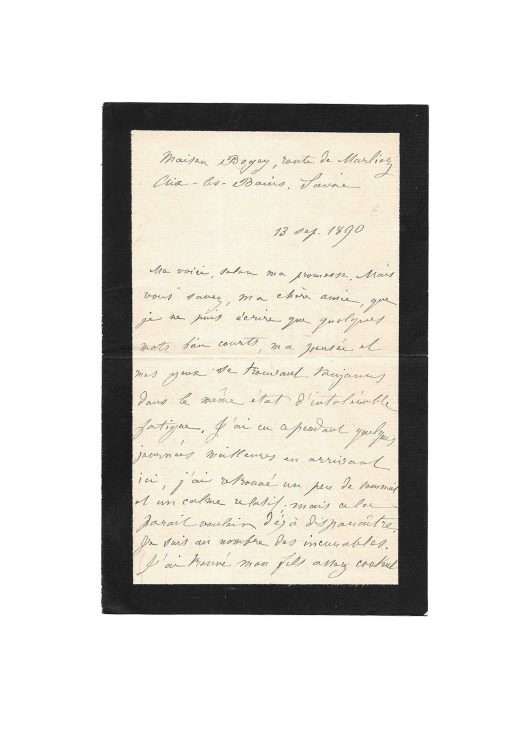 Maison Bogey, route de Marlioz
Aix-les-Bains. Savoie
13 sep. 1890
Me voici, selon ma promesse. Mais
vous savez, ma chère amie, que
je ne puis écrire que quelques
mots bien courts, ma pensée et
mes yeux se trouvant toujours
dans le même état d'intolérable
fatigue. J'ai eu cependant quelques
journées meilleures en arrivant
ici, j'ai retrouvé un peu de sommeil
et un calme relatif; mais cela
parait vouloir déjà disparaître.
Je suis au nombre des incurables.
J'ai trouvé mon fils assez content